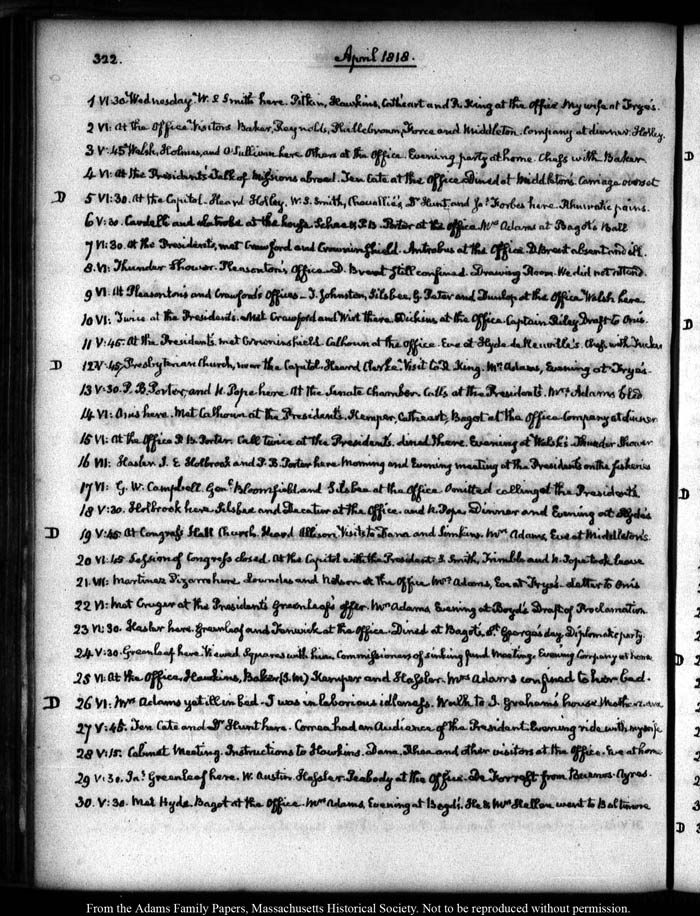 322. April 1818.
1 VI:30. Wednesday. W. S Smith here. Pitkin, Hawkins, Cathcart and R. King at the Office My wife at Frye's.
2 VI: At the Office Visitors Baker, Reynolds, Force and Middleton. Company at dinner. Holley
3 V:45 Walsh, Holmes, and O'Sullivan here Others at the Office. Evening party at home. Chess with Baker
4 VI: At the Presidents Talk of Missions abroad. Ten Cate at the Office Dined at Middleton's. Carriage overset
D 5 VI:30. At the Capitol. Heard Holley. W. S. Smith, Dr Hunt, and Jas. Forbes here. Rheumatic pains.
6 V:30. Cardelli and Latrobe at the house. & P. B. Porter at the office Mrs Adams at Bagot's Ball
7 VI:30. At the Presidents, met Crawford and Crowninshield. Antrobus at the Office. D. Brent absent and ill.
8 VI: Thunder Shower. Pleasonton's Office. D. Brent still confined. Drawing Room. We did not attend.
9 VI: At Pleasonton's and Crawford's Offices. J. Johnston, Silsbee, G. Peter and Dunlop at the Office Walsh here
10 VI: Twice at the Presidents. Met Crawford and Wirt there. Dickins at the Office. Captain Riley Draft to Onis.
11 V:45. At the Presidents. met Crowninshield. Calhoun at the office. Eve at Hyde de Neuville's. Chess with Tucker
D 12 V:45. Presbyterian Church, near the Capitol. Heard Clarke. Visit to R. King. Mrs Adams, Evening at Frye's.
13 V:30. P. B. Porter, and N. Pope here. At the Senate Chamber. Calls at the Presidents. Mrs Adams bled
14 VI: Onis here. Met Calhoun at the Presidents. Kemper, Cathcart, Bagot at the Office Company at dinner
15 VI: At the Office P. B. Porter. Call twice at the Presidents. dined there. Evening at Walsh's. Thunder Shower
16 VII: Hasler. J. E Holbrook and P. B. Porter here Morning and Evening meeting at the Presidents on the fisheries
17 VI: G. W. Campbell. Genl. Bloomfield and Silsbee at the Office Omitted calling at the Presidents
18 V:30. Holbrook here. Silsbee and Decatur at the Office, and N. Pope. Dinner and Evening at Hyde's
D 19 V:45. At Congress Hall Church. Heard Allison. Visits to Dana and Simkins. Mrs Adams, Eve at Middleton's.
20 VI:15 Session of Congress closed. At the Capitol with the President. S. Smith, Trimble and N. Pope took leave
21. VII: Martinez Pizarro here. Lowndes and Nelson at the Office Mrs Adams, Eve at Frye's. Letter to Onis
22 VI: Met Cruger at the Presidents Greenleaf's offer. Mrs Adams Evening at Boyd's Draft of Proclamation
23 VI:30. Hasler here. Greenleaf and Fenwick at the Office. Dined at Bagot's. St George's day. Diplomatic party.
24 V:30. Greenleaf here. Viewed Squares with him. Commissioners of sinking fund Meeting. Evening Company at home
25 VI: At the Office, Hawkins, Baker (S. M.) Kemper and Hassler. Mrs Adams confined to her bed.
D 26 VI: Mrs Adams yet ill in bed. I was in laborious idleness. Walk to J. Graham's house.
27 V:45. Ten Cate and Dr Hunt here. Correa had an Audience of the President. Evening ride with my wife
28 V:15. Cabinet Meeting. Instructions to Hawkins. Dana, Rhea and other visitors at the Office. Eve at home
29 V:30. Jas. Greenleaf here. W. Austin. Hassler. Peabody at the Office. De Forrest from Buenos-Ayres.
30. V:30. Met Hyde. Bagot at the Office. Mrs Adams, Evening at Boyd's. He & Mrs Hellen went to Baltimore
From the Adams Family Papers, Massachusetts Historical Society. Not to be reproduced without permission.